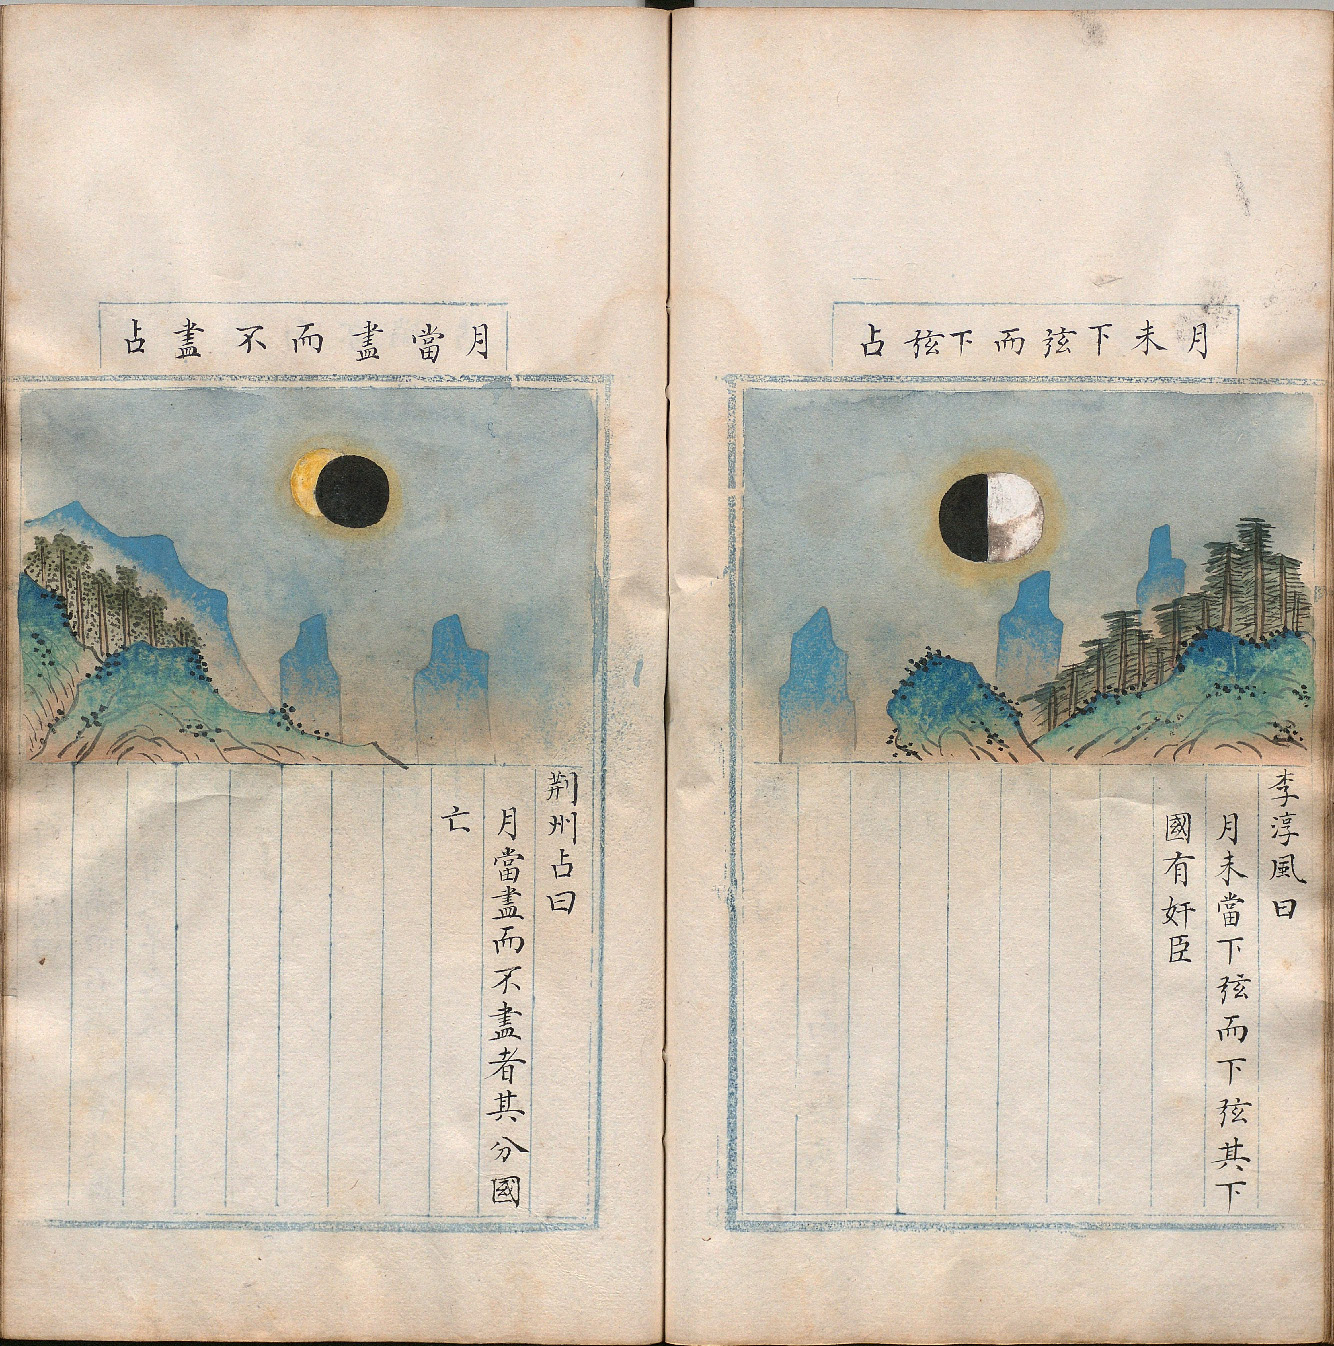 月未下弦而下弦占
李淳風曰
月未當下弦而下弦其下
國有奸臣
月當盡而不盡占
荆州占曰
月當盡而不盡者其分國
亡